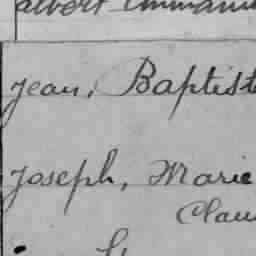 albert Emmanu
Jean, Baptist
Joseph, Marie
Clau